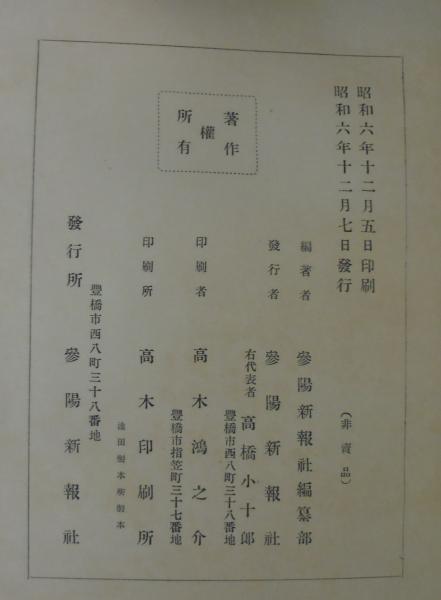 昭和六年十二月五日印刷
昭和六年十二月七日發行
(非賣品)
著作權所有
編著者 參陽新報社編纂部
發行者 參陽新報社
右代表者 高橋小十郎
豐橋市西八町三十八番地
印刷者 高木鴻之介
豐橋市指笠町三十七番地
印刷所 高木印刷所
豐橋市西八町三十八番地
發行所 參陽新報社